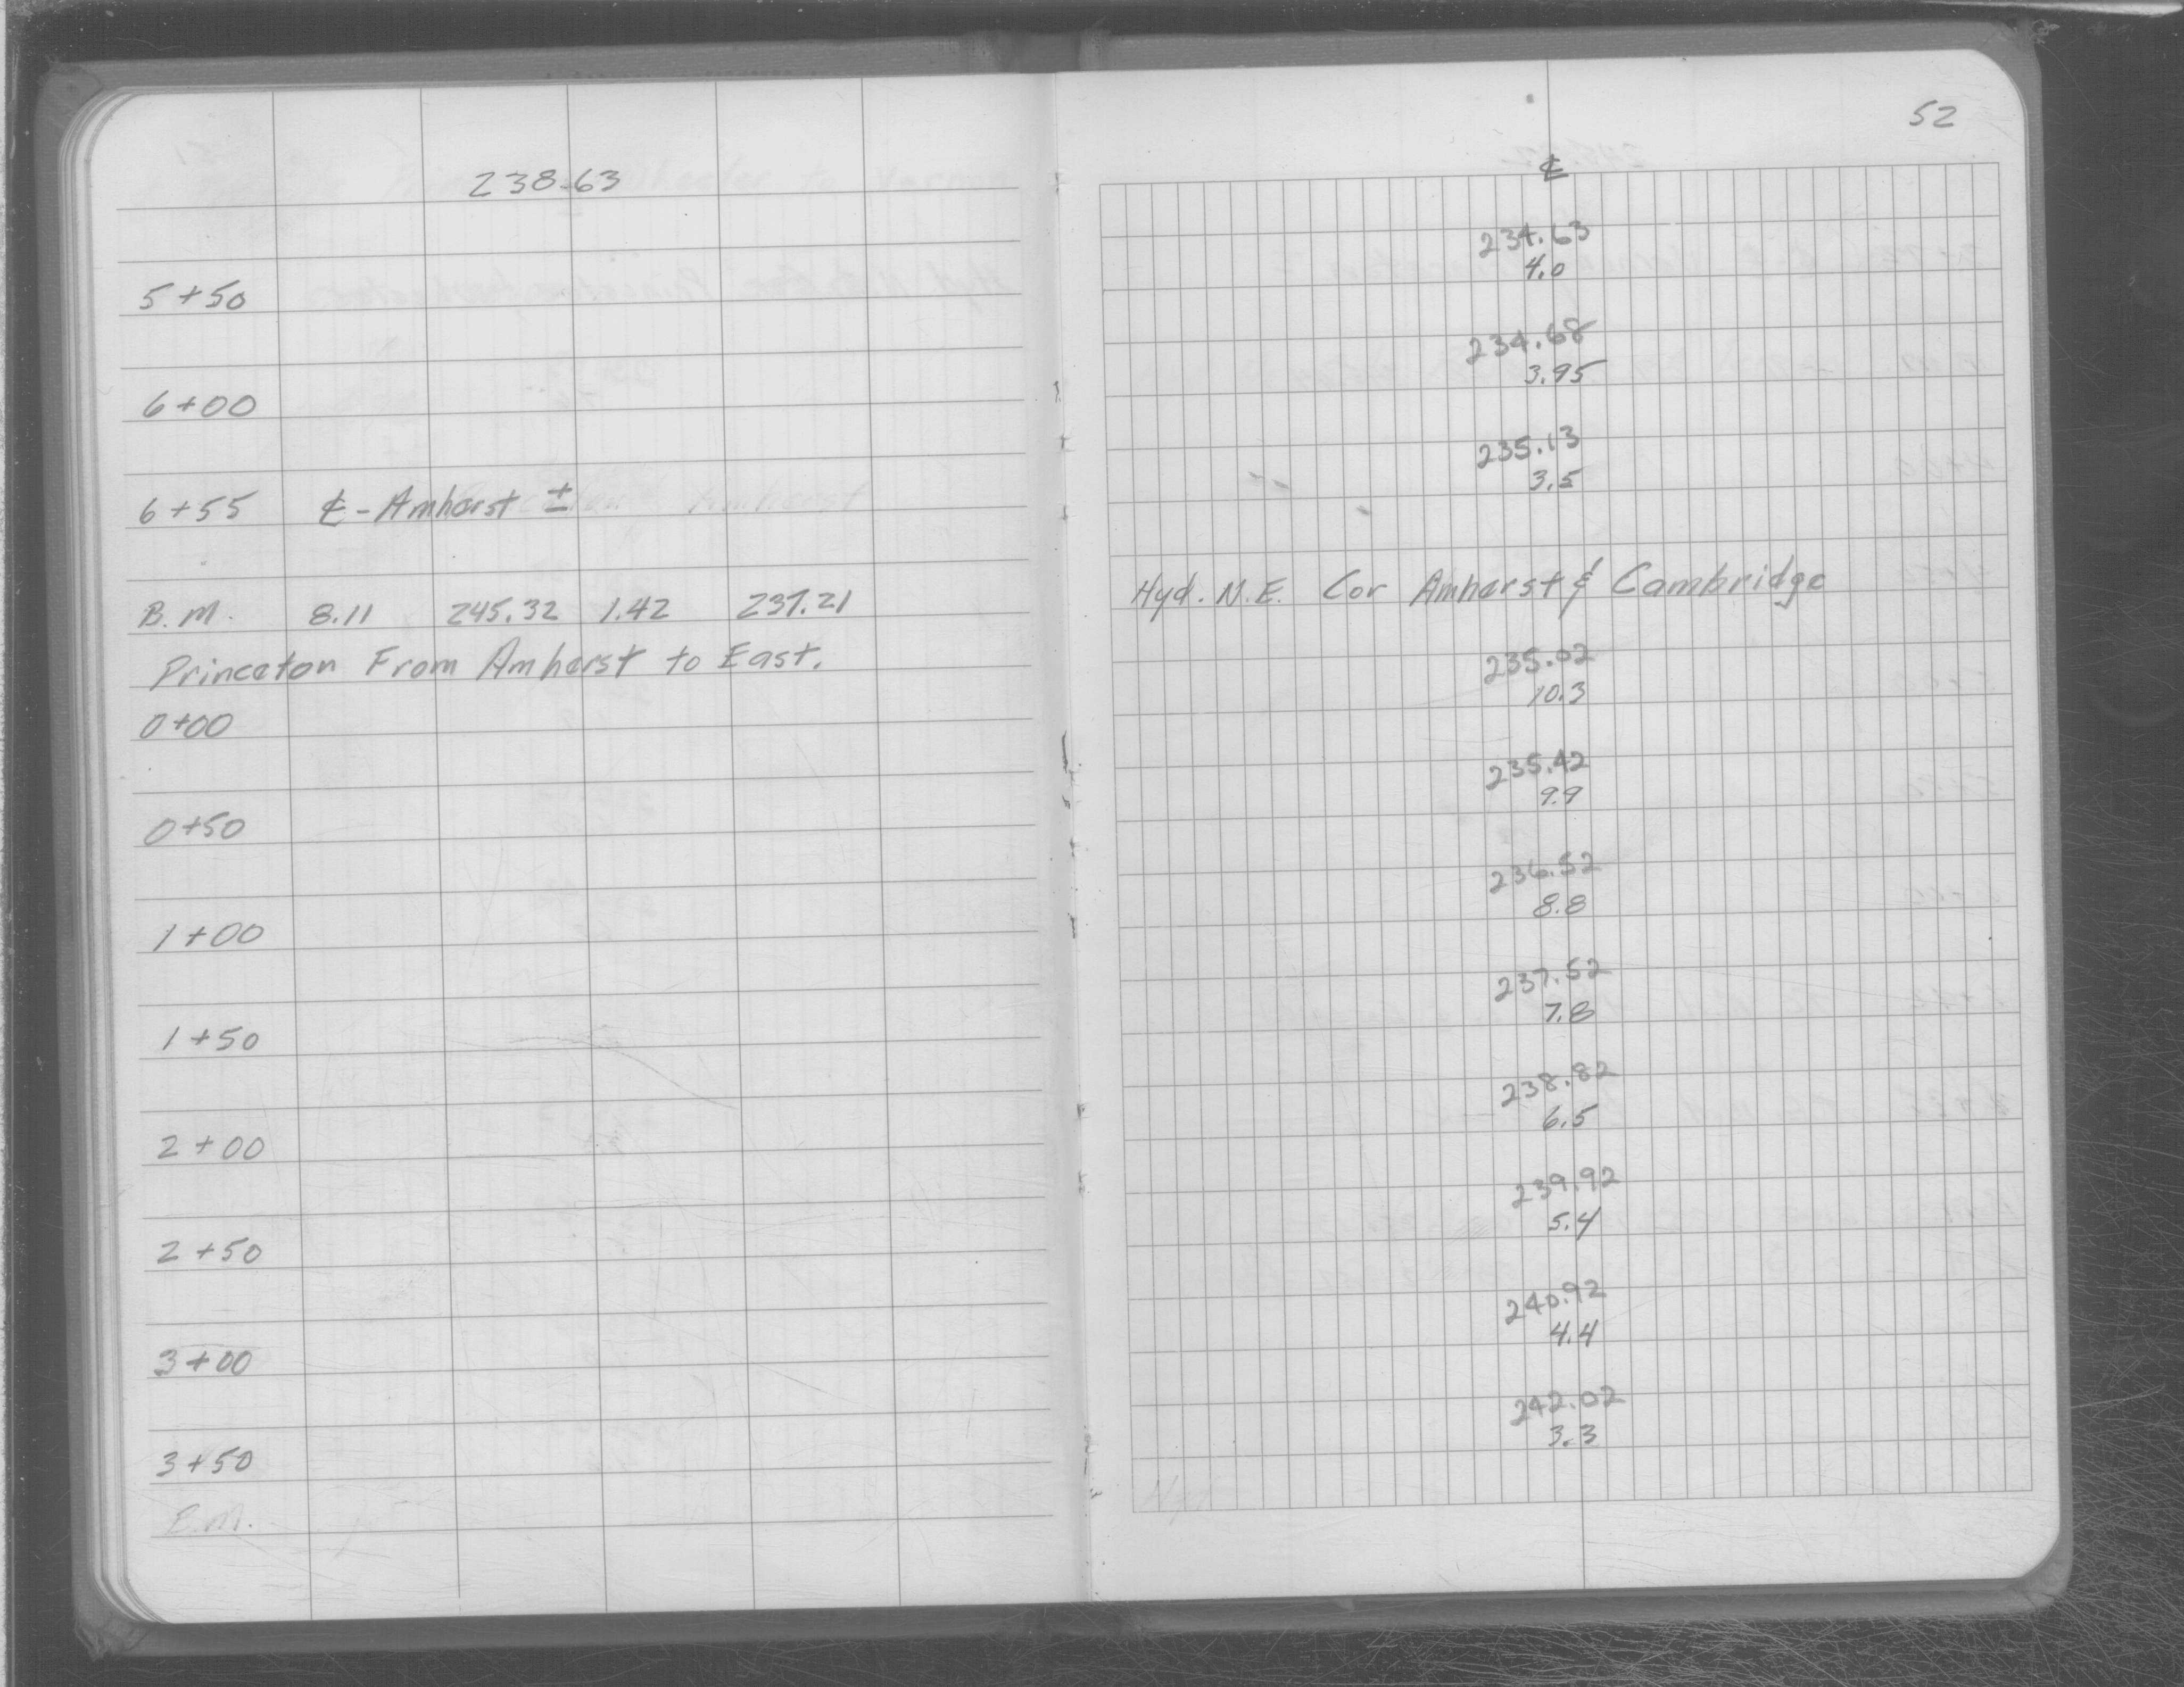 52
238.63
℄
234.63
5+50 4.0
234.68
6+00 3.95
235.13
6+55 ℄-Amherst ± 3.5
B.M. 8.11 245.32 1.42 237.21 Hyd. N.E. Cor Amherst & Cambridge
Princeton From Amherst to East.
235.02
0+00 10.3
235.42
0+50 9.9
236.52
1+00 8.8
237.52
1+50 7.8
238.82
2+00 6.5
239.92
2+50 5.4
240.92
3+00 4.4
242.02
3+50 3.3
B.M.